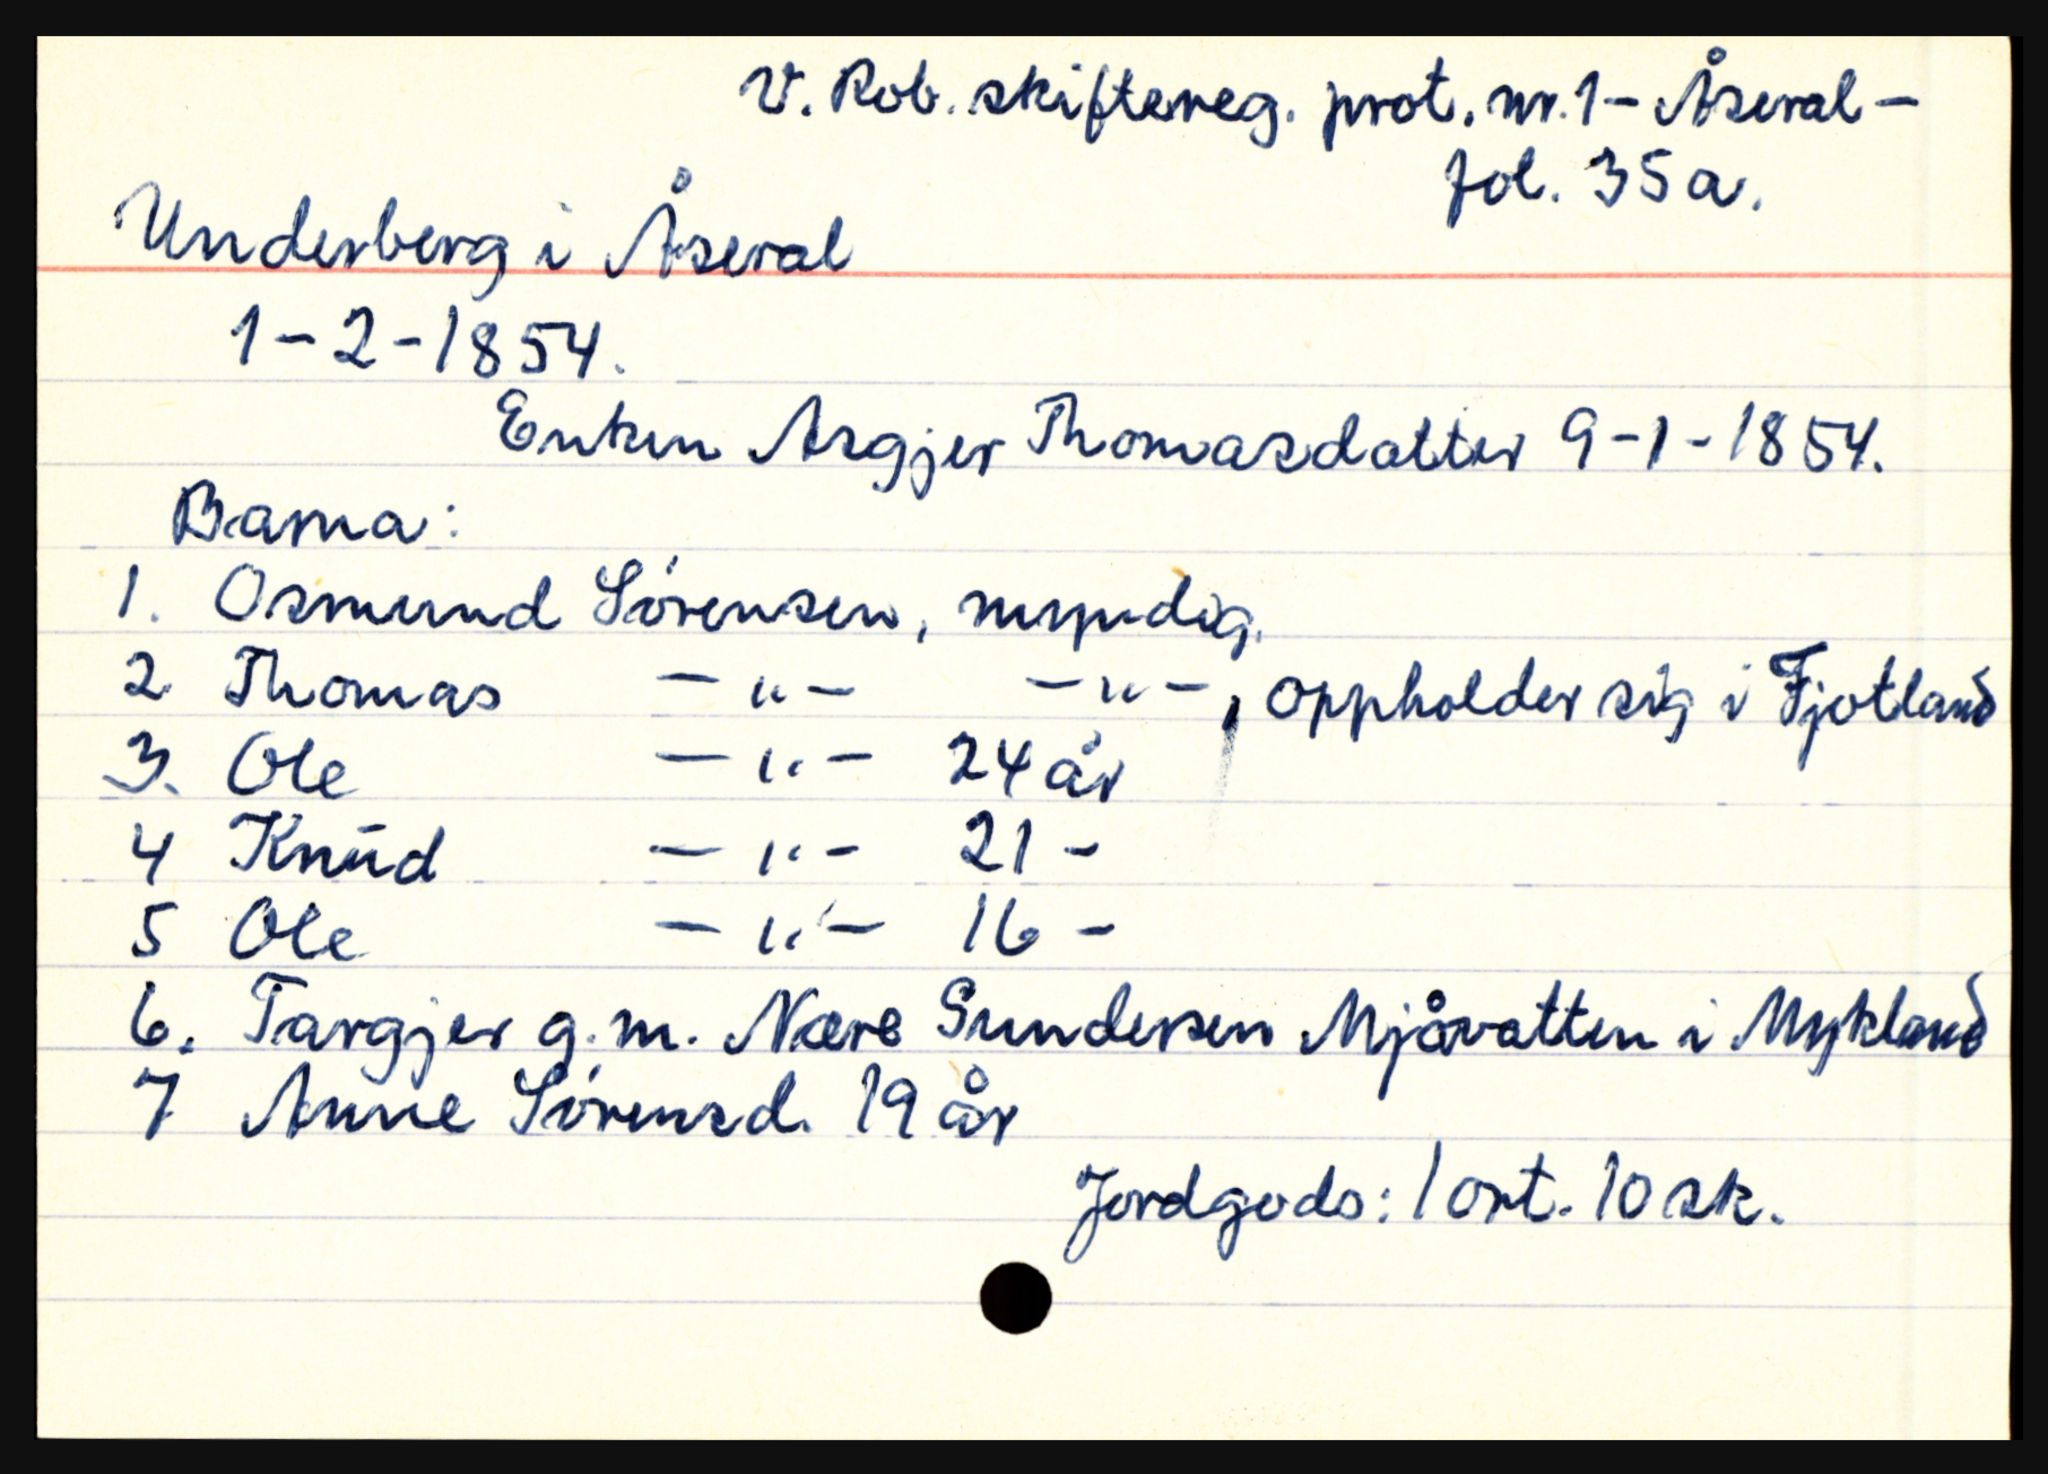 V. Rob. skiftereg. prot. nr. 1 - Åseral -
fol. 35a.
Underberg i Åseral
1-2-1854.
Enken Asgjer Thomasdatter 9-1-1854.
Barna:
1. Osmund Sørensen, myndig.
2 Thomas -"- -"-, oppholder sig i Fjotland
3. Ole -"- 24 år
4 Knud -"- 21 -
5 Ole -"- 16 -
6. Targjer g.m. Nære Gundersen Mjåvatten i Mykland
7 Anne Sørensd. 19 år
Jordgods: 1 ort. 10 sk.